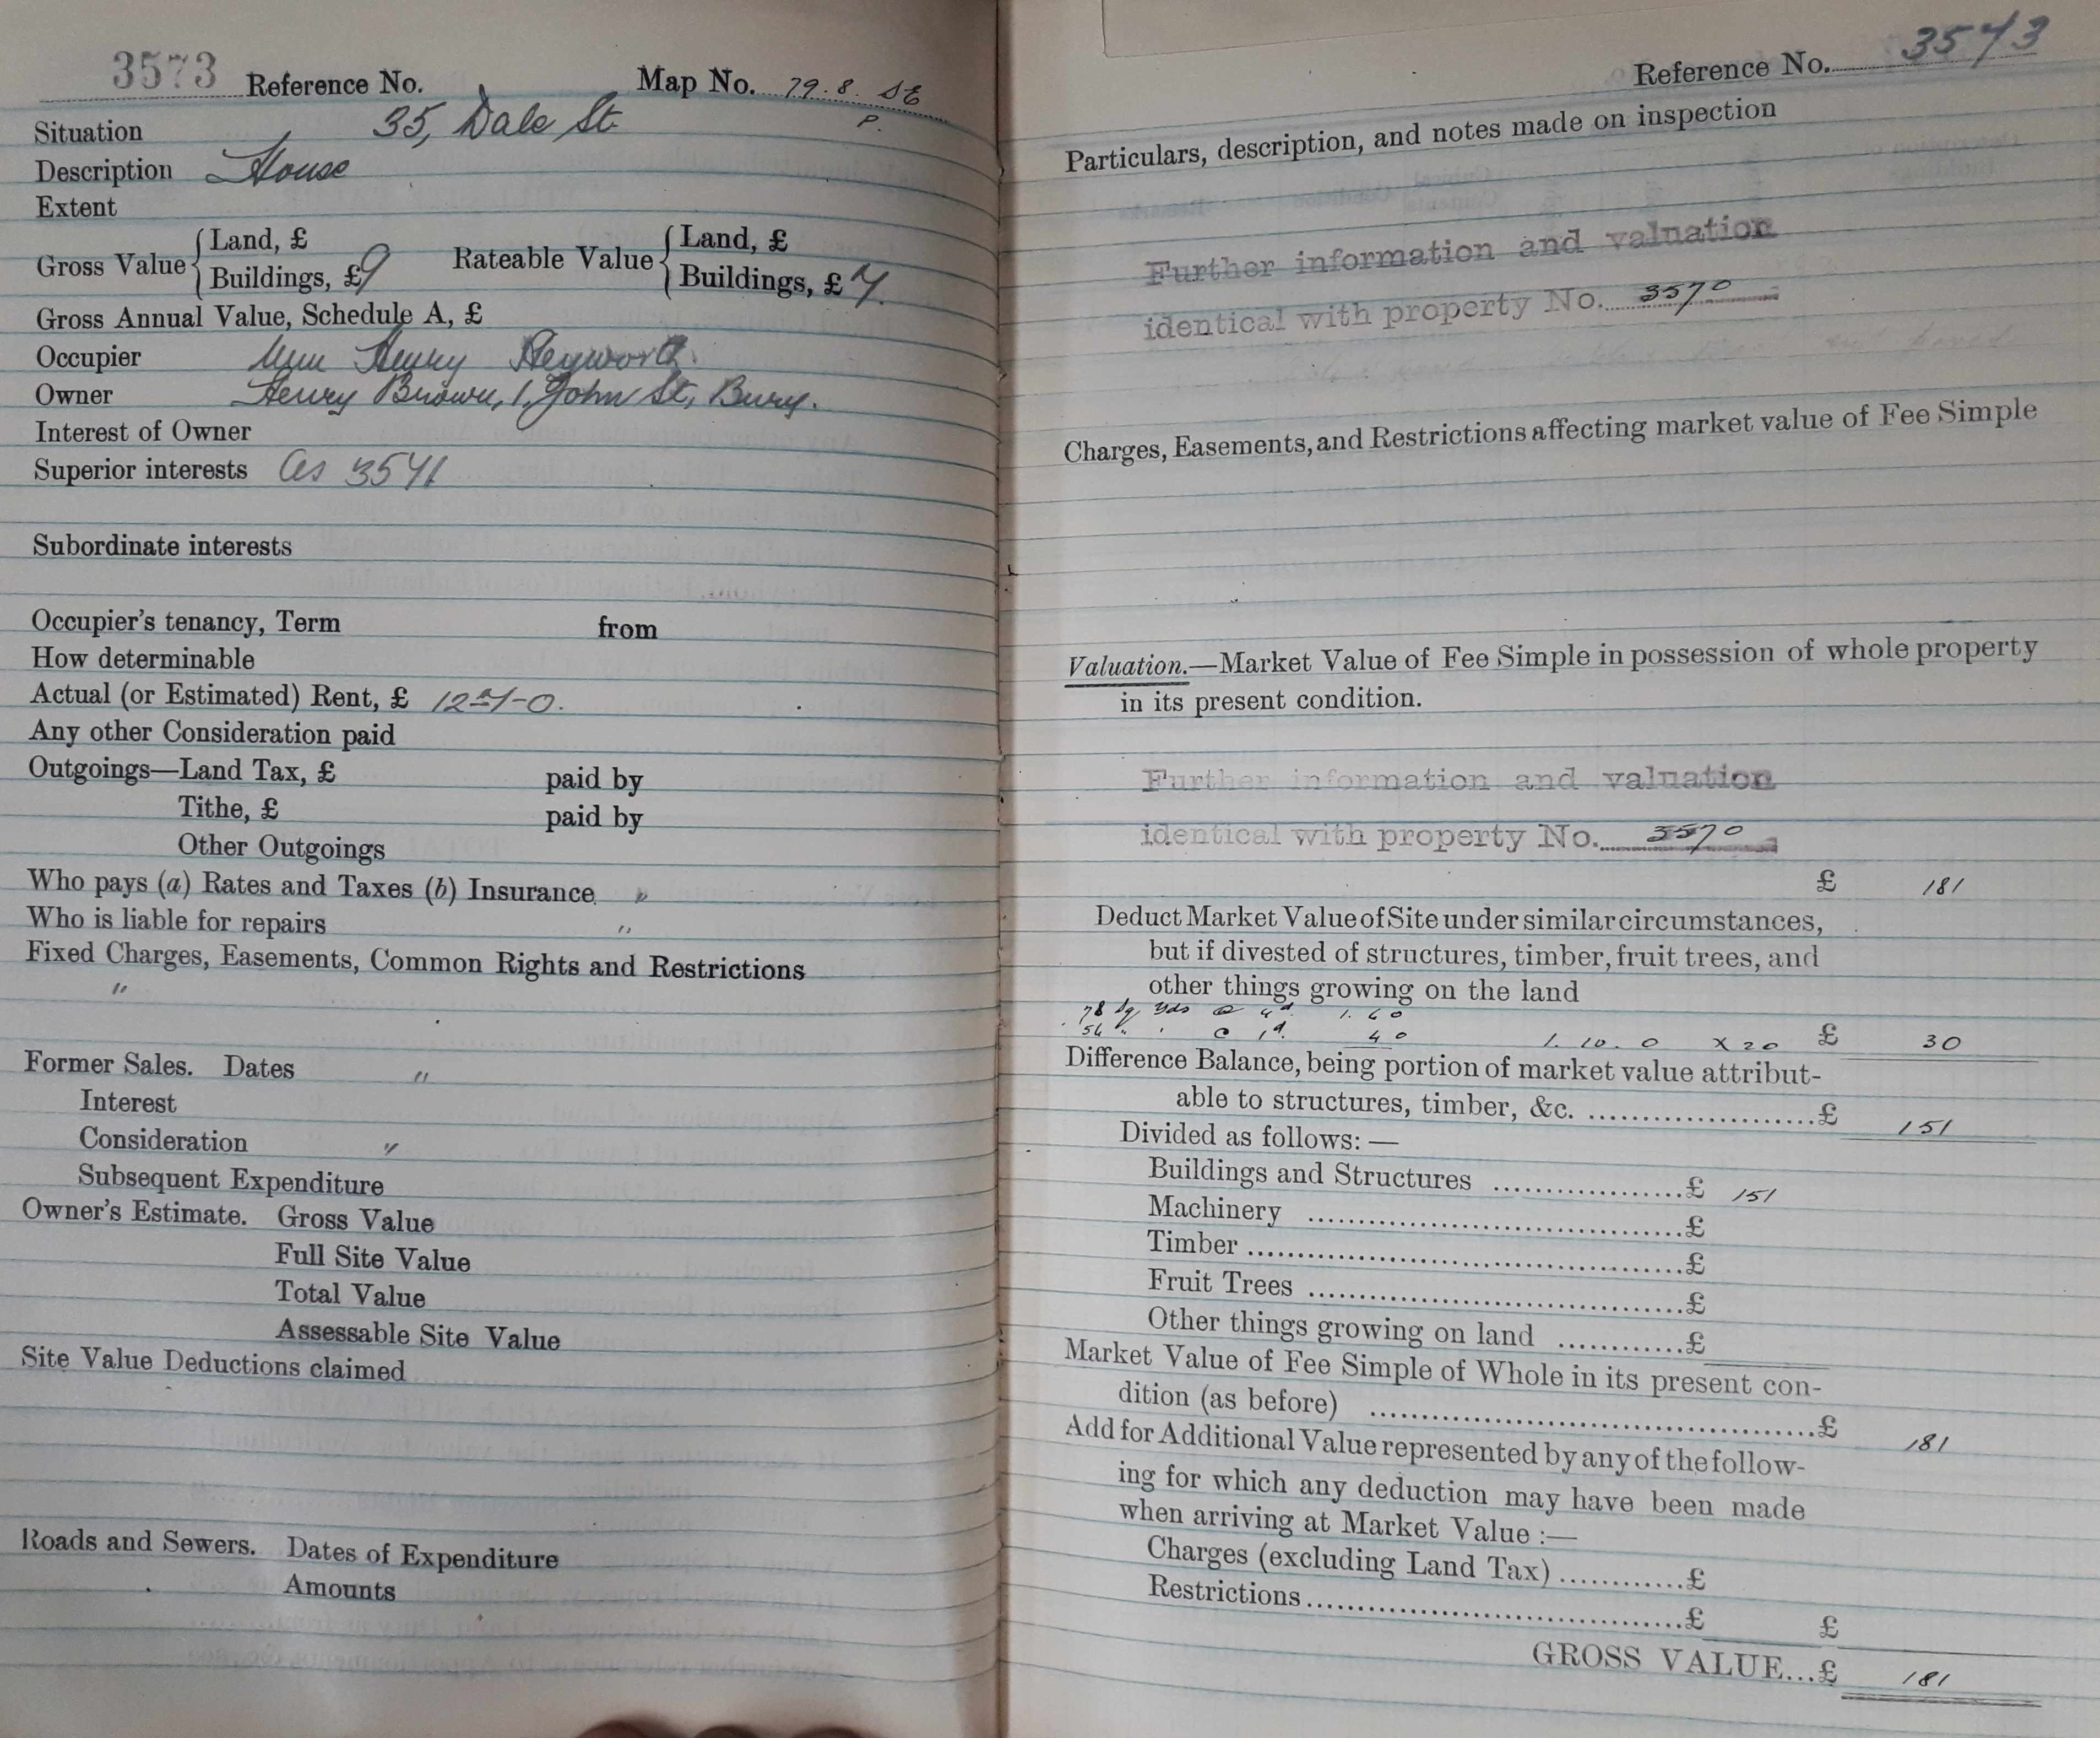 3573 Reference No. Map No. 79.8. SE
P.
Situation 35, Dale St.
Description House
Extent
Gross Value { Land, £ Rateable Value { Land, £
Buildings, £ 9 Buildings, £ 7.
Gross Annual Value, Schedule A, £
Occupier Wm Henry Heyworth.
Owner Henry Brown, 1, John St, Bury.
Interest of Owner
Superior interests as 3541
Subordinate interests
Occupier's tenancy, Term from
How determinable
Actual (or Estimated) Rent, £
Any other Consideration paid
Outgoings—Land Tax, £ paid by
Tithe, £ paid by
Other Outgoings
Who pays (a) Rates and Taxes (b) Insurance "
Who is liable for repairs "
Fixed Charges, Easements, Common Rights and Restrictions
"
Former Sales. Dates "
Interest
Consideration "
Subsequent Expenditure
Owner's Estimate. Gross Value
Full Site Value
Total Value
Assessable Site Value
Site Value Deductions claimed
Roads and Sewers. Dates of Expenditure
Amounts
Reference No. 3573
Particulars, description, and notes made on inspection
Further information and valuation
identical with property No. 3570
Charges, Easements, and Restrictions affecting market value of Fee Simple
Valuation.—Market Value of Fee Simple in possession of whole property
in its present condition.
Further information and valuation
identical with property No. 3570
£ 181
Deduct Market Value of Site under similar circumstances,
but if divested of structures, timber, fruit trees, and
other things growing on the land
78 Sq Yds @ 4d. 1. 6 0
54 " " @ 1d. 4 0 1. 10. 0 x 20 £ 30
Difference Balance, being portion of market value attribut-
able to structures, timber, &c. ....................£ 151
Divided as follows:—
Buildings and Structures ..................£ 151
Machinery ....................................£
Timber ..........................................£
Fruit Trees ....................................£
Other things growing on land ............£
Market Value of Fee Simple of Whole in its present con-
dition (as before) ..........................................£ 181
Add for Additional Value represented by any of the follow-
ing for which any deduction may have been made
when arriving at Market Value :—
Charges (excluding Land Tax) ............£
Restrictions ....................................£ £
GROSS VALUE...£ 181